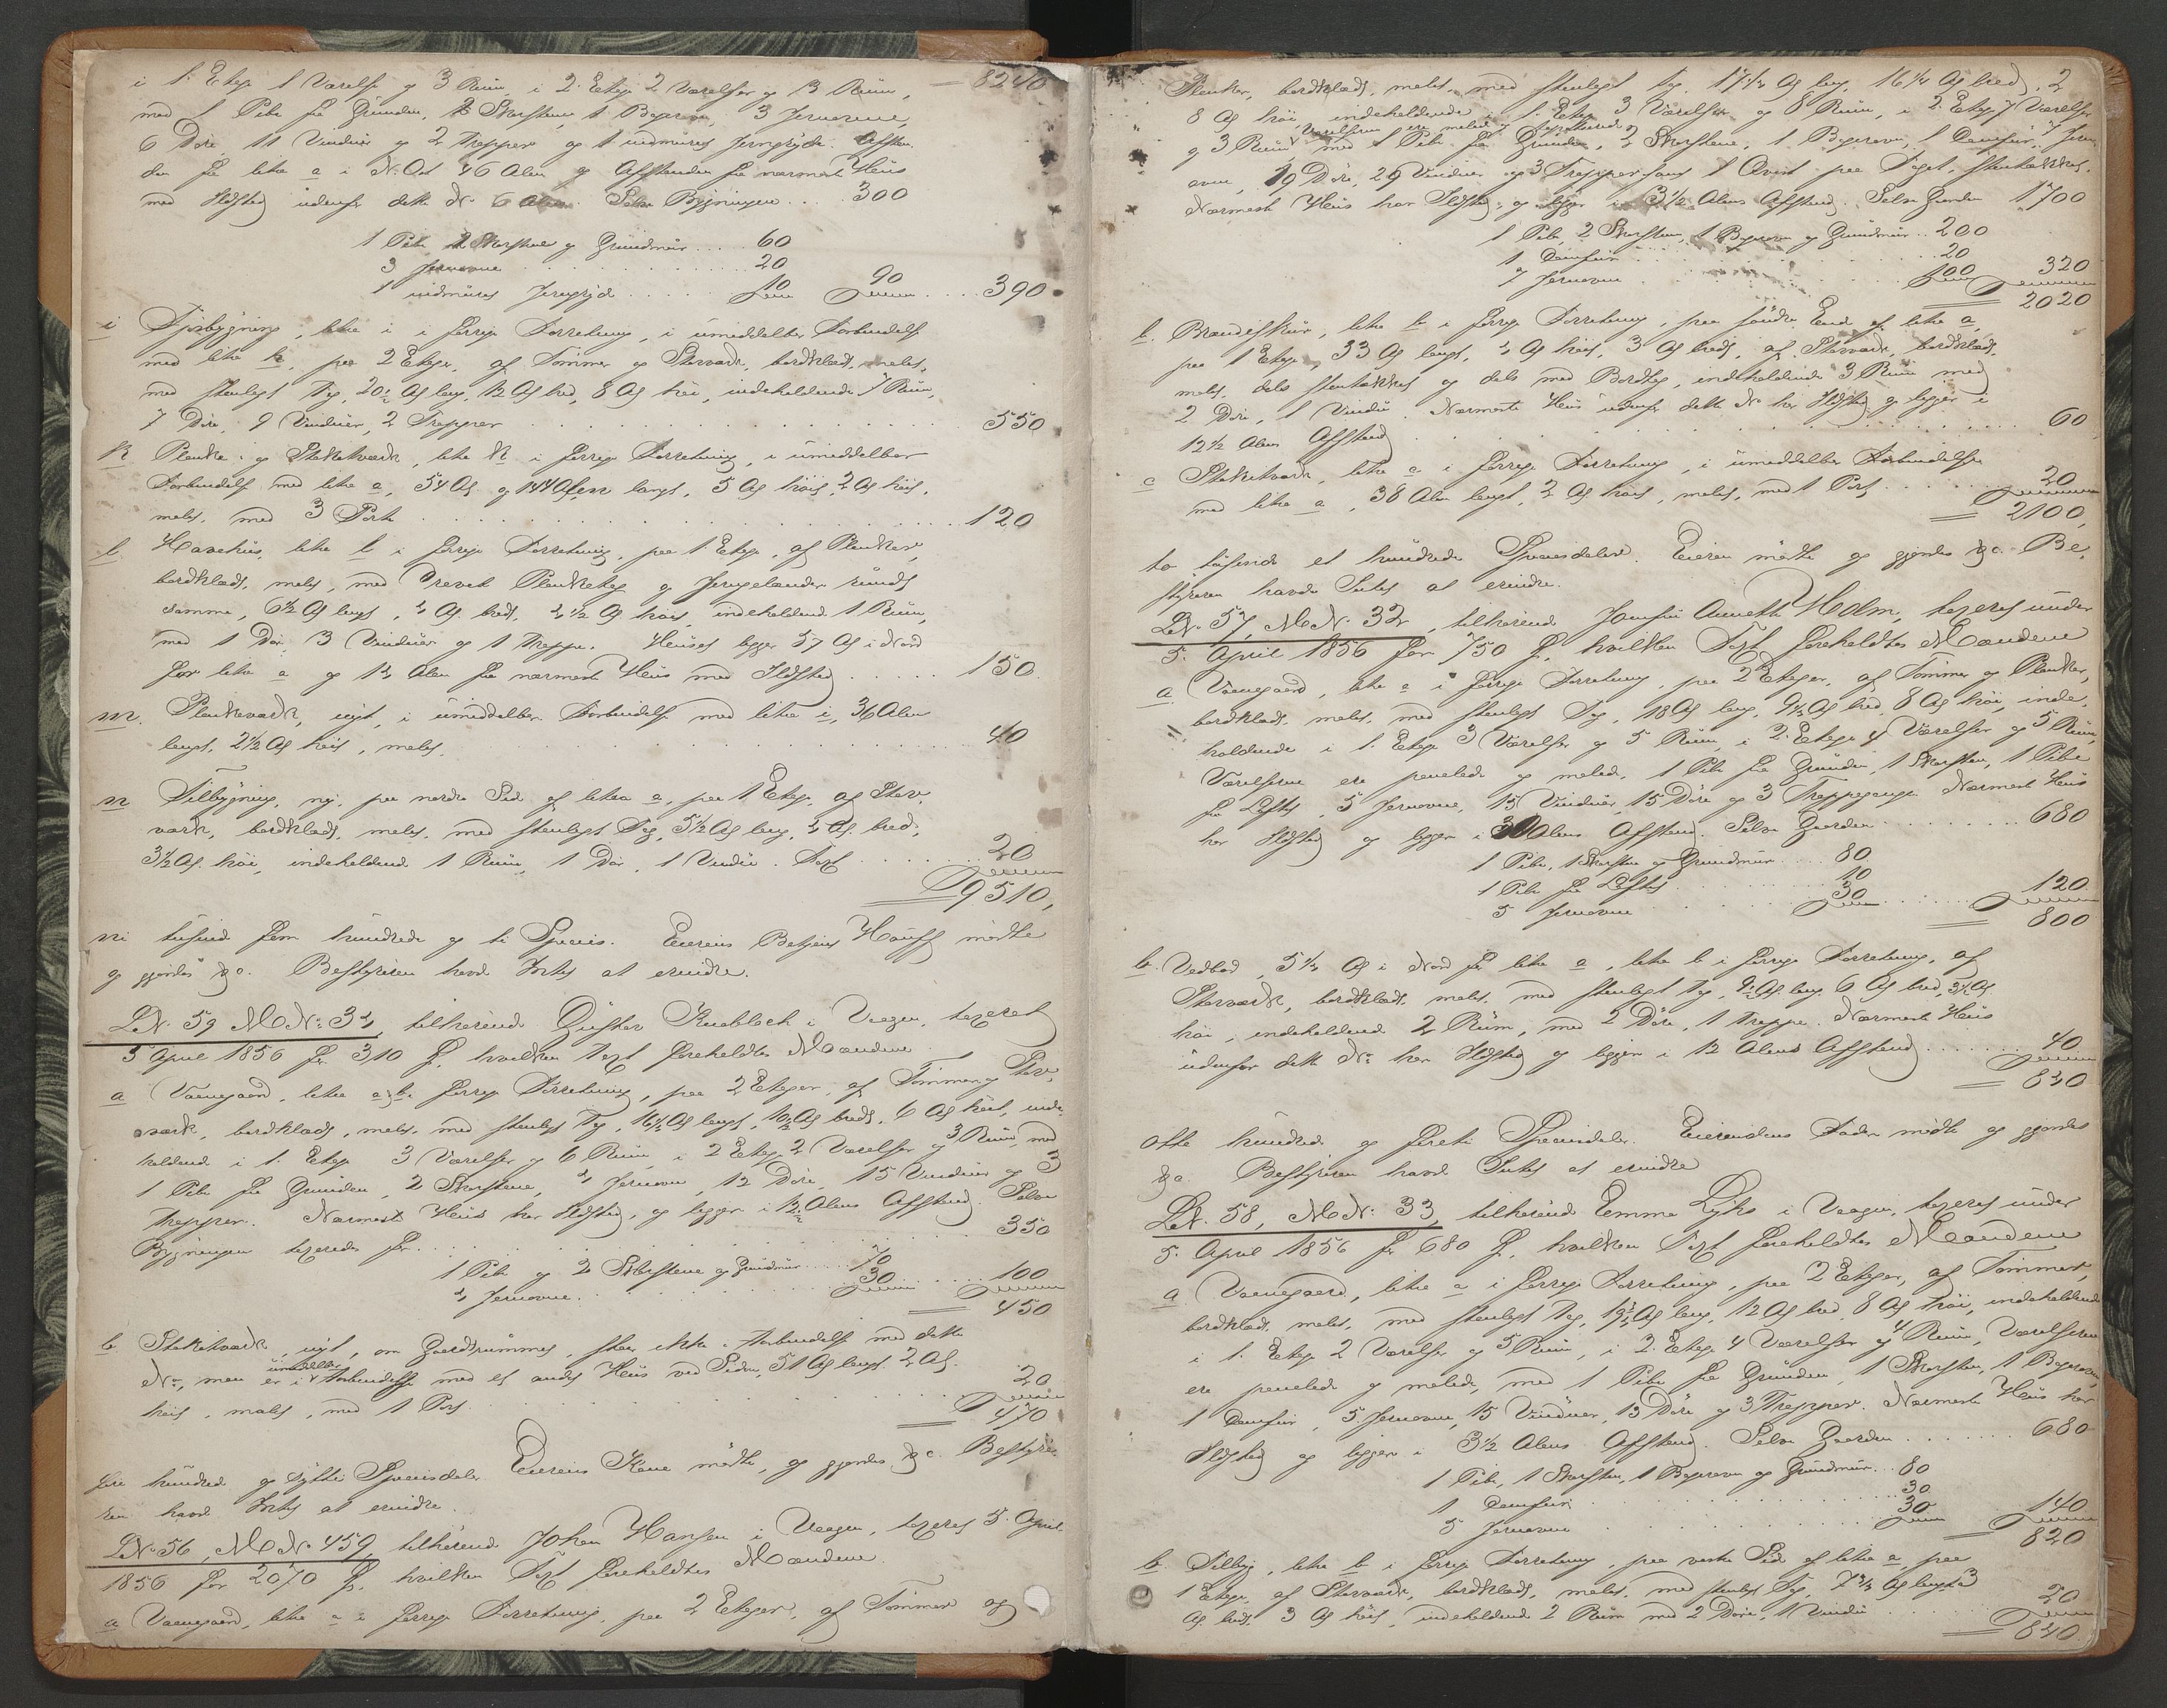 i 1. Etage 1 Værelse og 3 Rum, i 2. Etage 2 Værelser og 3 Rum, 8240
med 1 Pibe fra Grunden, 2 Skorstene, 1 Bagerovn, 3 Jernovne,
6 Døre, 11 Vinduer og 2 Trapper og 1 indmuret Jerngryde. Afstan-
den fra litra a i N. Ost 46 Alen og Afstanden fra nærmeste Huus
med Ildsted udenfor dette No 6 Alen. Selve Bygningen .. 300
1 Pibe 2 Skorstene og Grundmuur .... 60
3 Jernovne ........ 20
1 indmuret Jerngryde ..... 10 90 .... 390
i Fjøsbygning, litra i i forrige Forretning, i umiddelbar Forbindelse
med litra h, paa 2 Etager, af Tømmer og Stavværk, bordklædt, malet,
med steenlagt Tag, 20½ Al. lang, 12 Al. bred, 8 Al. høi, indeholdende 7 Rum,
7 Døre, 9 Vinduer, 2 Trapper ........ 550
k Planke- og Stakitværk, litra k i forrige Forretning, i umiddelbar
Forbindelse med litra a, 54 Al. og 144 Alen langt, 5 Al. høit, 2 Al. høit,
malet, med 3 Porte ........ 120
l. Havehuus, litra l i forrige Forretning, paa 1 Etage, af Planker,
bordklædt, malet, med Planketag og Jerngelænder rundt
samme, 6½ Al. langt, 4 Al. bredt, 4½ Al. høit, indeholdende 1 Rum,
med 1 Dør, 3 Vinduer og 1 Trappe. Huset ligger 57 Al. i Nord
for litra a og 14 Alen fra nærmeste Huus med Ildsted ..... 150.
m. Plankeværk, nyt, i umiddelbar Forbindelse med litra i, 36 Alen
langt, 2½ Al. høit, malet. ........ 40
n Tilbygning, ny, paa nordre Side af litra a, paa 1 Etage, af Stav-
værk, bordklædt, malet, med steenlagt Tag, 5½ Al. lang, 4 Al. bred,
3½ Al. høi, indeholdende 1 Rum, 1 Dør, 1 Vindue. Taxt ...... 20
9510,
ni tusind fem hundrede og ti Species. Eierens Betjent Hauff mødte
og gjordes &c. Bestyreren havde Intet at erindre.
LN. 59 MN: 34, tilhørende Gustav Knobloch i Vaagen, taxeret
5 April 1856 for 310 , hvilken Taxt foreholdtes Mændene
a Vaanegaard, litra a, b i forrige Forretning, paa 2 Etager, af Tømmer og Stav-
værk, bordklædt, malet, med steenlagt Tag, 16½ Al. langt, 10½ Al. bredt, 6 Al. høit, inde-
holdende i 1. Etage 3 Værelser og 6 Rum, i 2 Etage 2 Værelser og 3 Rum, med
1 Pibe fra Grunden, 2 Skorstene, 4 Jernovne, 12 Døre, 15 Vinduer og 3
Trapper. Nærmeste Huus har Ildsted, og ligger i 12½ Alens Afstand. Selve
Bygningen taxeredes for ....... 350
1 Pibe og 2 Skorstene og Grundmuur .... 70
4 Jernovne ........ 30 ..... 100
450
b Stakitværk, nyt, om Gaardsrummet, staar ikke i Forbindelse med dette
No, men er i umiddelbar Forbindelse med et andet Huus ved Siden, 51 Al. langt, 2 Al.
høit, malet, med 1 Port ........ 20
470
fire hundrede og sytti Speciesdaler. Eierens Kone mødte, og gjordes &c. Bestyre-
ren havde Intet at erindre.
LN. 56, MN. 459, tilhørende Johan Hansen i Vaagen, taxeret 5. April
1856 for 2070 , hvilken Taxt foreholdtes Mændene
a Vaanegaard, litra a i forrige Forretning, paa 2 Etager, af Tømmer og
Planker, bordklædt, malet, med steenlagt Tag, 17½ Al. lang, 16¼ Al. bred,
8 Al. høi, indeholdende i 1. Etage 3 Værelser og 8 Rum, i 2. Etage 7 Værelser
og 3 Rum, Værelserne ere malede og med 1 Pibe fra Grunden, 2 Skorstene, 1 Bagerovn, 1 Damfuir, 7 Jern-
ovne, 19 Døre, 29 Vinduer og 3 Trapper samt 1 Qvist paa Taget, steentækket.
Nærmeste Huus har Ildsted, og ligger i 3½ Alens Afstand. Selve Gaarden 1700
1 Pibe, 2 Skorstene, 1 Bagerovn og Grundmuur .. 200
1 Damfuir ...... 20
7 Jernovne ...... 100 320
2020
b. Brændeskuur, litra b i forrige Forretning, paa søndre Ende af litra a,
paa 1 Etage, 33 Al. langt, 4 Al. høit, 3 Al. bredt, af Stavværk, bordklædt,
malet, dels steentækket og dels med Bordtag, indeholdende 3 Rum med
2 Døre, 1 Vindue. Nærmeste Huus udenfor dette No har Ildsted og ligger i
12½ Alens Afstand ........ 60
c Stakitværk, litra c i forrige Forretning, i umiddelbar Forbindelse
med litra a, 38 Alen langt, 2 Al. høit, malet, med 1 Port ..... 20
2100,
to tusinde et hundrede Speciesdaler. Eieren mødte og gjordes &c. Be-
styreren havde Intet at erindre.
LN. 57, MN. 32, tilhørende Jomfru Annette Holm, taxeret under
5. April 1856 for 750 , hvilken Taxt foreholdtes Mændene
a Vaanegaard, litra a i forrige Forretning, paa 2 Etager, af Tømmer og Planker,
bordklædt, malet, med steenlagt Tag, 18 Al. lang, 9½ Al. bred, 8 Al. høi, inde-
holdende i 1. Etage 3 Værelser og 5 Rum, i 2. Etage 4 Værelser og 5 Rum,
Værelserne ere panelede og malede, 1 Pibe fra Grunden, 1 Skorsten, 1 Pibe
fra Loftet, 5 Jernovne, 15 Vinduer, 15 Døre og 3 Trappegange. Nærmeste Huus
har Ildsted og ligger i Alens Afstand. Selve Gaarden ........ 680
1 Pibe, 1 Skorsten og Grundmuur .... 80
1 Pibe fra Loftet ........ 10
5 Jernovne ........ 30 ..... 120
800
b. Vedbod, 5¼ Al. i Nord fra litra a, litra b i forrige Forretning, af
Stavværk, bordklædt, malet, med steenlagt Tag, 9½ Al. lang, 6 Al. bred, 3½ Al.
høi, indeholdende 2 Rum, med 2 Døre, 1 Trappe. Nærmeste Huus
udenfor dette No har Ildsted og ligger i 12 Alens Afstand ....... 40
840
otte hundrede og førti Speciesdaler. Eierindens Fader mødte og gjordes
&c. Bestyreren havde Intet at erindre
LN. 58, MN: 33, tilhørende Emma Lyhs i Vaagen, taxeret under
5. April 1856 for 680 , hvilken Taxt foreholdtes Mændene
a Vaanegaard, litra a i forrige Forretning, paa 2 Etager, af Tømmer,
bordklædt, malet, med steenlagt Tag, 19¾ Al. lang, 12 Al. bred, 8 Al. høi, indeholdende
i 1. Etage 2 Værelser og 5 Rum, i 2. Etage 4 Værelser og 4 Rum, Værelserne
ere panelede og malede, med 1 Pibe fra Grunden, 1 Skorsten, 1 Bagerovn,
1 Damfuir, 5 Jernovne, 15 Vinduer, 13 Døre og 3 Trapper. Nærmeste Huus har
Ildsted og ligger i 3½ Alens Afstand. Selve Gaarden ....... 680
1 Pibe, 1 Skorsten, 1 Bagerovn og Grundmuur .. 80
1 Damfuir ........ 30
5 Jernovne ........ 30 140
820
b. Tilbyg, litra b i forrige Forretning, paa vestre Side af litra a, paa
1 Etage, af Stavværk, bordklædt, malet, med steenlagt Tag, 7¾ Al. langt, 3
Al. bredt, 3 Al. høit, indeholdende 2 Rum med 2 Døre, 1 Vindue 20
840